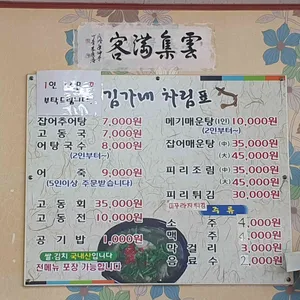 客滿集雲
1인
부탁드립니다
김가네 차림표
잡어추어탕 7,000원
고동국 7,000원
어탕국수 8,000원
(2인부터~)
어죽 9,000원
(5인이상 주문받습니다)
고동회 35,000원
고동전 10,000원
공기밥 1,000원
쌀.김치 국내산입니다
전메뉴 포장 가능합니다
메기매운탕(1인) 10,000원
(2인부터~)
잡어매운탕 (中) 35,000원
(大) 45,000원
피리조림 (中) 35,000원
(大) 45,000원
피리튀김 30,000원
주류
소주 4,000원
맥주 4,000원
막걸리 3,000원
음료수 2,000원